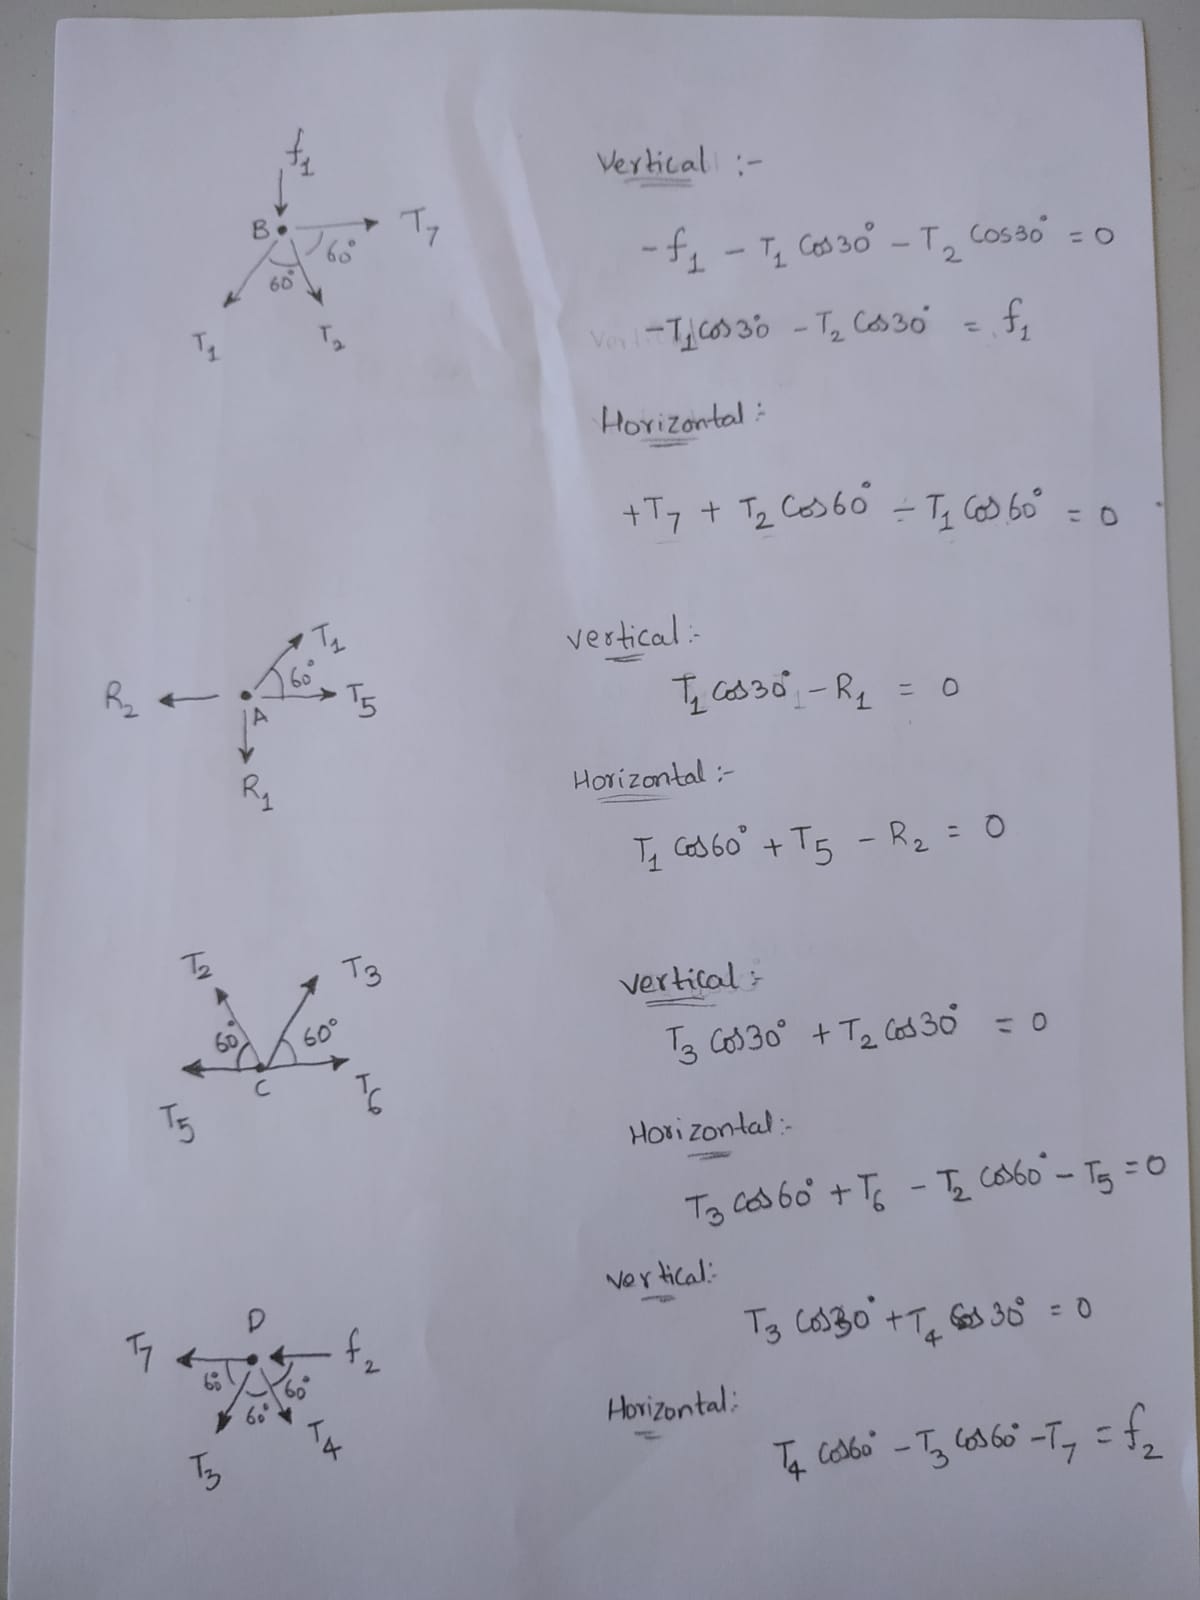 f₁
B
T₇
60°
60°
T₁
T₂
Vertical :-
-f₁ - T₁ Cos30° - T₂ Cos30° = 0
-T₁Cos30 - T₂ Cos30° = f₁
Horizontal :-
+T₇ + T₂ Cos60° - T₁ Cos60° = 0
T₁
60°
R₂
A
T₅
R₁
vertical :-
T₁ Cos30° - R₁ = 0
Horizontal :-
T₁ Cos60° + T₅ - R₂ = 0
T₂
T₃
60°
60°
T₅
C
T₆
vertical :-
T₃ Cos30° + T₂ Cos30° = 0
Horizontal :-
T₃ Cos60° + T₆ - T₂ Cos60° - T₅ = 0
D
T₇
f₂
60°
60°
60°
T₃
T₄
vertical :-
T₃ Cos30° + T₄ Cos30° = 0
Horizontal :-
T₄ Cos60° - T₃ Cos60° - T₇ = f₂